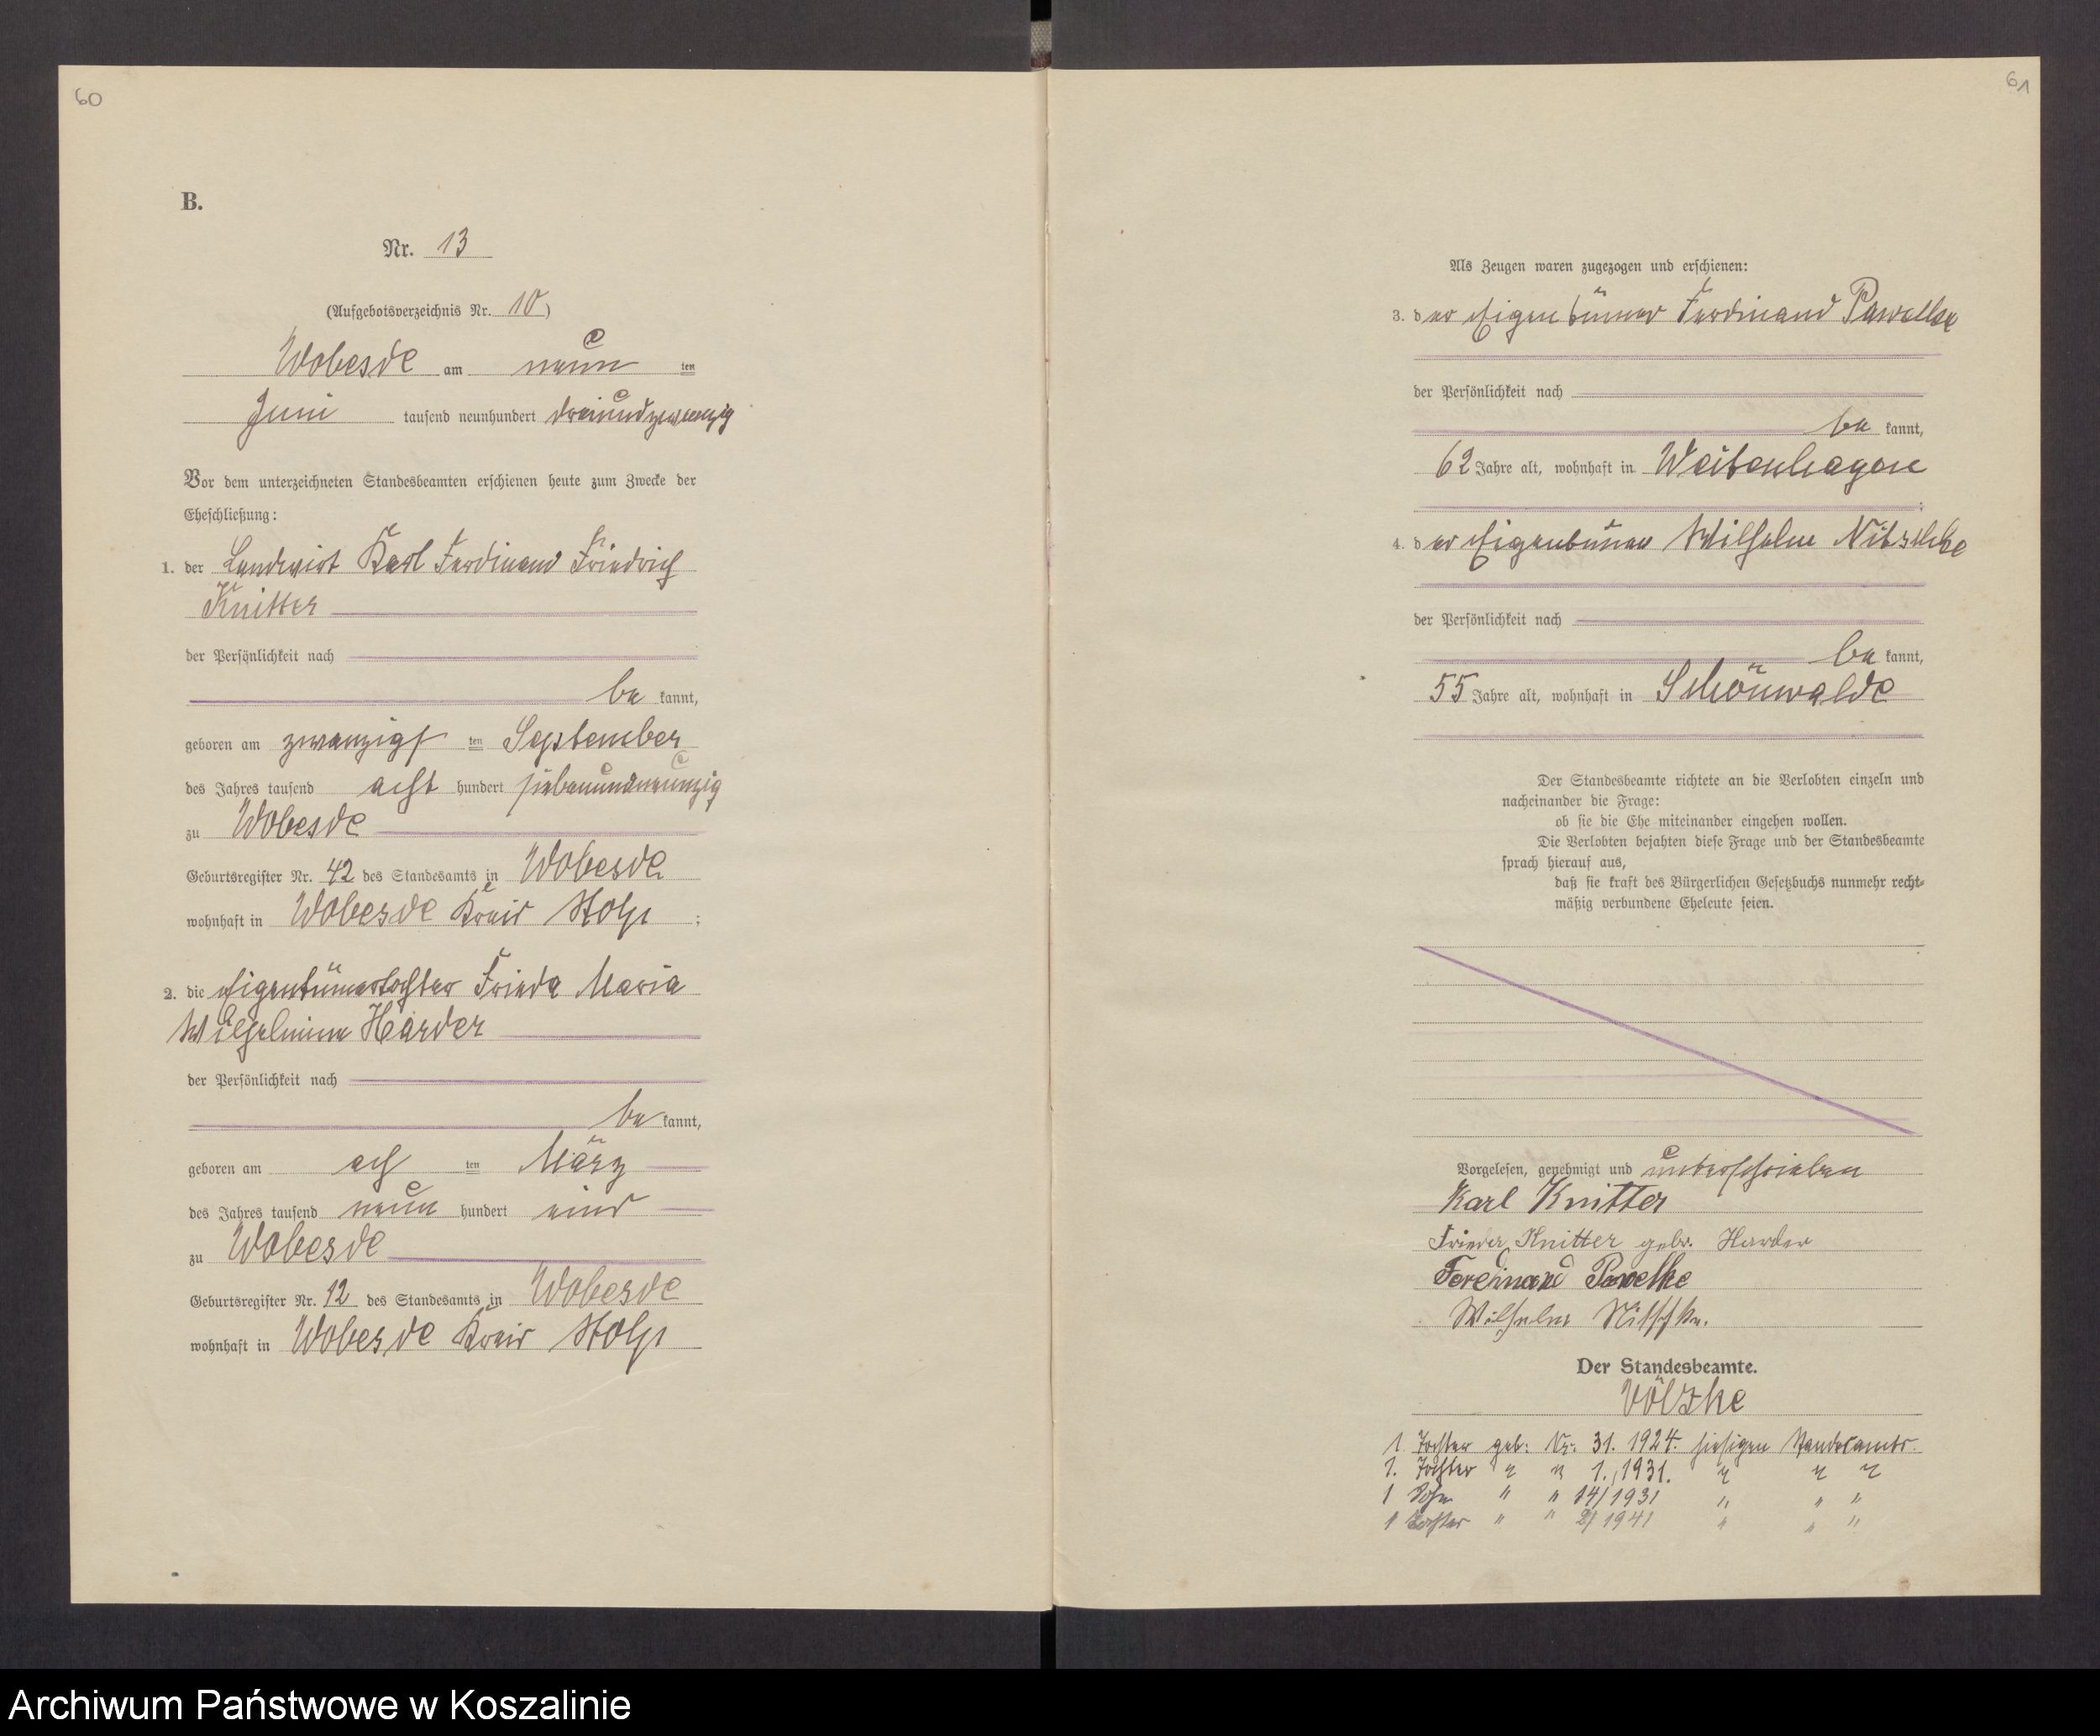 60
B.
Nr. 13
(Aufgebotsverzeichnis Nr. 10)
Wobesde am neun ten
Juni tausend neunhundert dreiundzwanzig
Vor dem unterzeichneten Standesbeamten erschienen heute zum Zwecke der
Eheschließung:
1. der Landwirt Karl Ferdinand Friedrich
Knitter
der Persönlichkeit nach
be kannt,
geboren am zwanzigs ten September
des Jahres tausend acht hundert siebenundneunzig
zu Wobesde
Geburtsregister Nr. 42 des Standesamts in Wobesde
wohnhaft in Wobesde Kreis Stolp ;
2. die Eigentümertochter Frieda Maria
Wilhelmine Harder
der Persönlichkeit nach
be kannt,
geboren am ach ten März
des Jahres tausend neun hundert eins
zu Wobesde
Geburtsregister Nr. 12 des Standesamts in Wobesde
wohnhaft in Wobesde Kreis Stolp
61
Als Zeugen waren zugezogen und erschienen:
3. der Eigentümer Ferdinand Pawelke
der Persönlichkeit nach
be kannt,
62 Jahre alt, wohnhaft in Weitenhagen
;
4. der Eigentümer Wilhelm Nitschke
der Persönlichkeit nach
be kannt,
55 Jahre alt, wohnhaft in Schönwalde
Der Standesbeamte richtete an die Verlobten einzeln und
nacheinander die Frage:
ob sie die Ehe miteinander eingehen wollen.
Die Verlobten bejahten diese Frage und der Standesbeamte
sprach hierauf aus,
daß sie kraft des Bürgerlichen Gesetzbuchs nunmehr recht-
mäßig verbundene Eheleute seien.
Vorgelesen, genehmigt und unterschrieben
Karl Knitter
Frieda Knitter geb. Harder
Ferdinand Pawelke
Wilhelm Nitschke.
Der Standesbeamte.
Völzke
1 Tochter geb: Nr. 31. 1924. hiesigen Standesamts.
1. Tochter " " 1., 1931. " " "
1 Sohn " " 14/1931 " " "
1 Tochter " " 2/1941 " " "
Archiwum Państwowe w Koszalinie